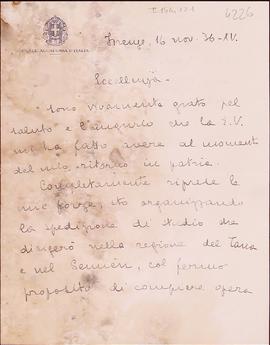 4226
REALE ACCADEMIA D'ITALIA
Firenze, 16 nov. 36-XV.
Eccellenza -
Sono vivamente grato pel
saluto e l'augurio che la E.V.
mi ha fatto avere al momento
del mio ritorno in patria.
Completamente riprese le
mie forze, sto organizzando
la spedizione di studio che
dirigerò nella regione del Tana
e nel Semièn, col fermo
proposito di compiere opera